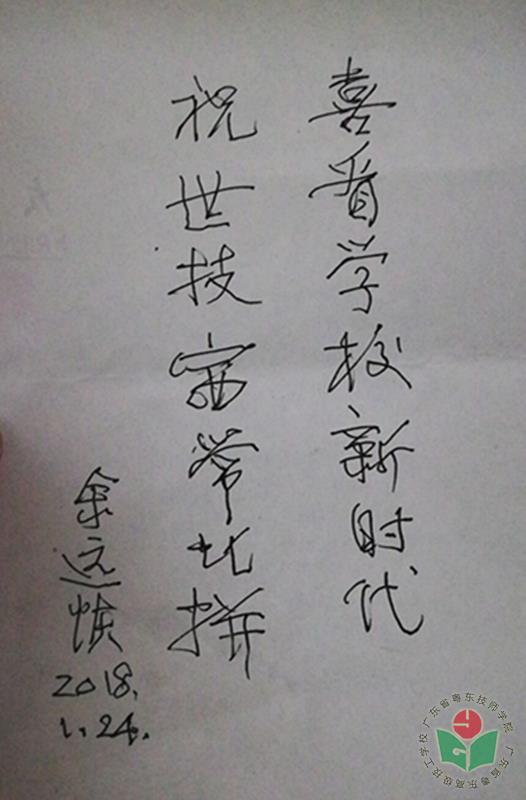 喜看学校新时代
祝世技赛常比拼
余远
2018.
1.24.
广东省粤东技师学院
广东省粤东高级技工学校